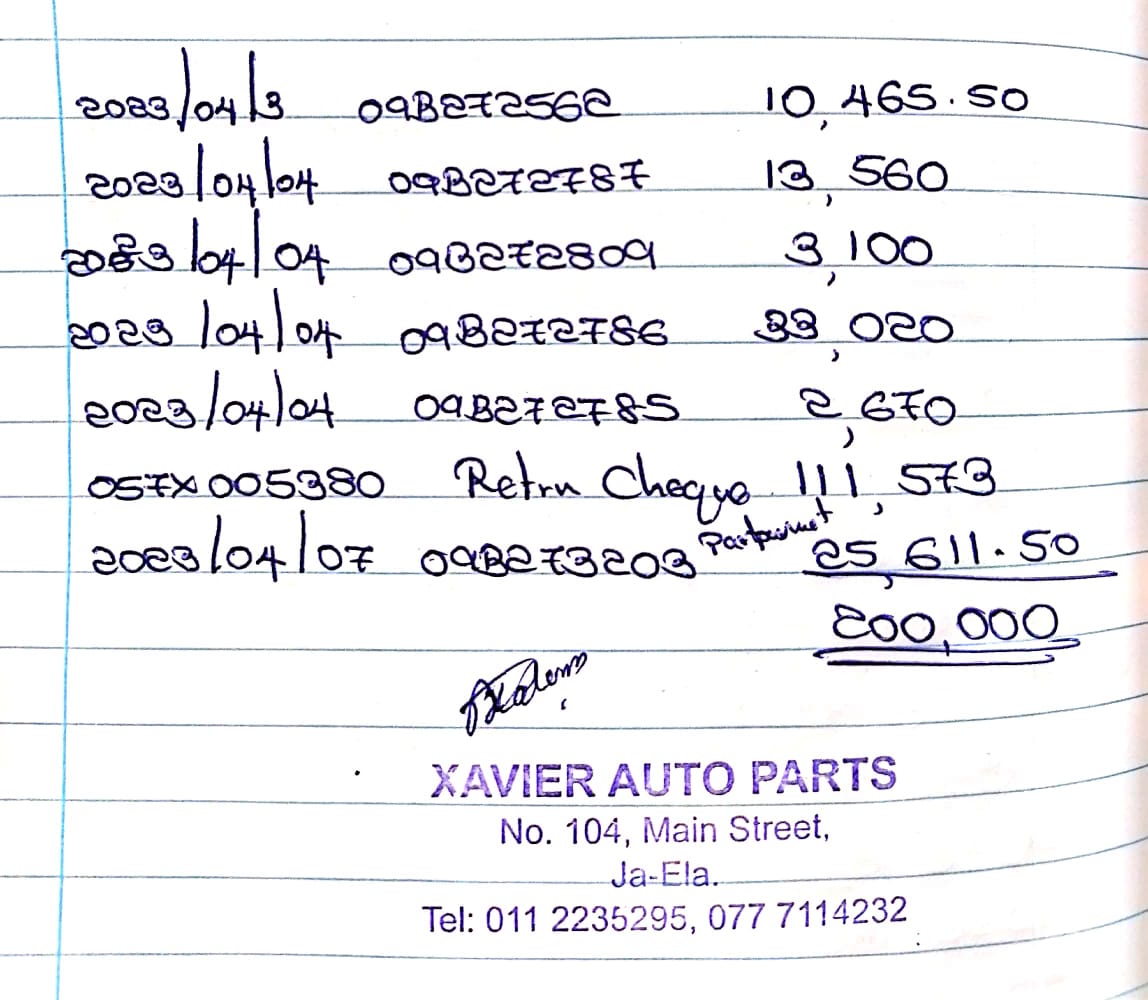 2023/04/3 09B272562 10,465.50
2023/04/04 09B272787 13,560
2023/04/04 09B272809 3,100
2023/04/04 09B272786 33,020
2023/04/04 09B272785 2,670
057X005380 Retrn Cheque 111,573
2023/04/07 09B273203 Partpaymet 25,611.50
200,000
XAVIER AUTO PARTS
No. 104, Main Street,
Ja-Ela.
Tel: 011 2235295, 077 7114232